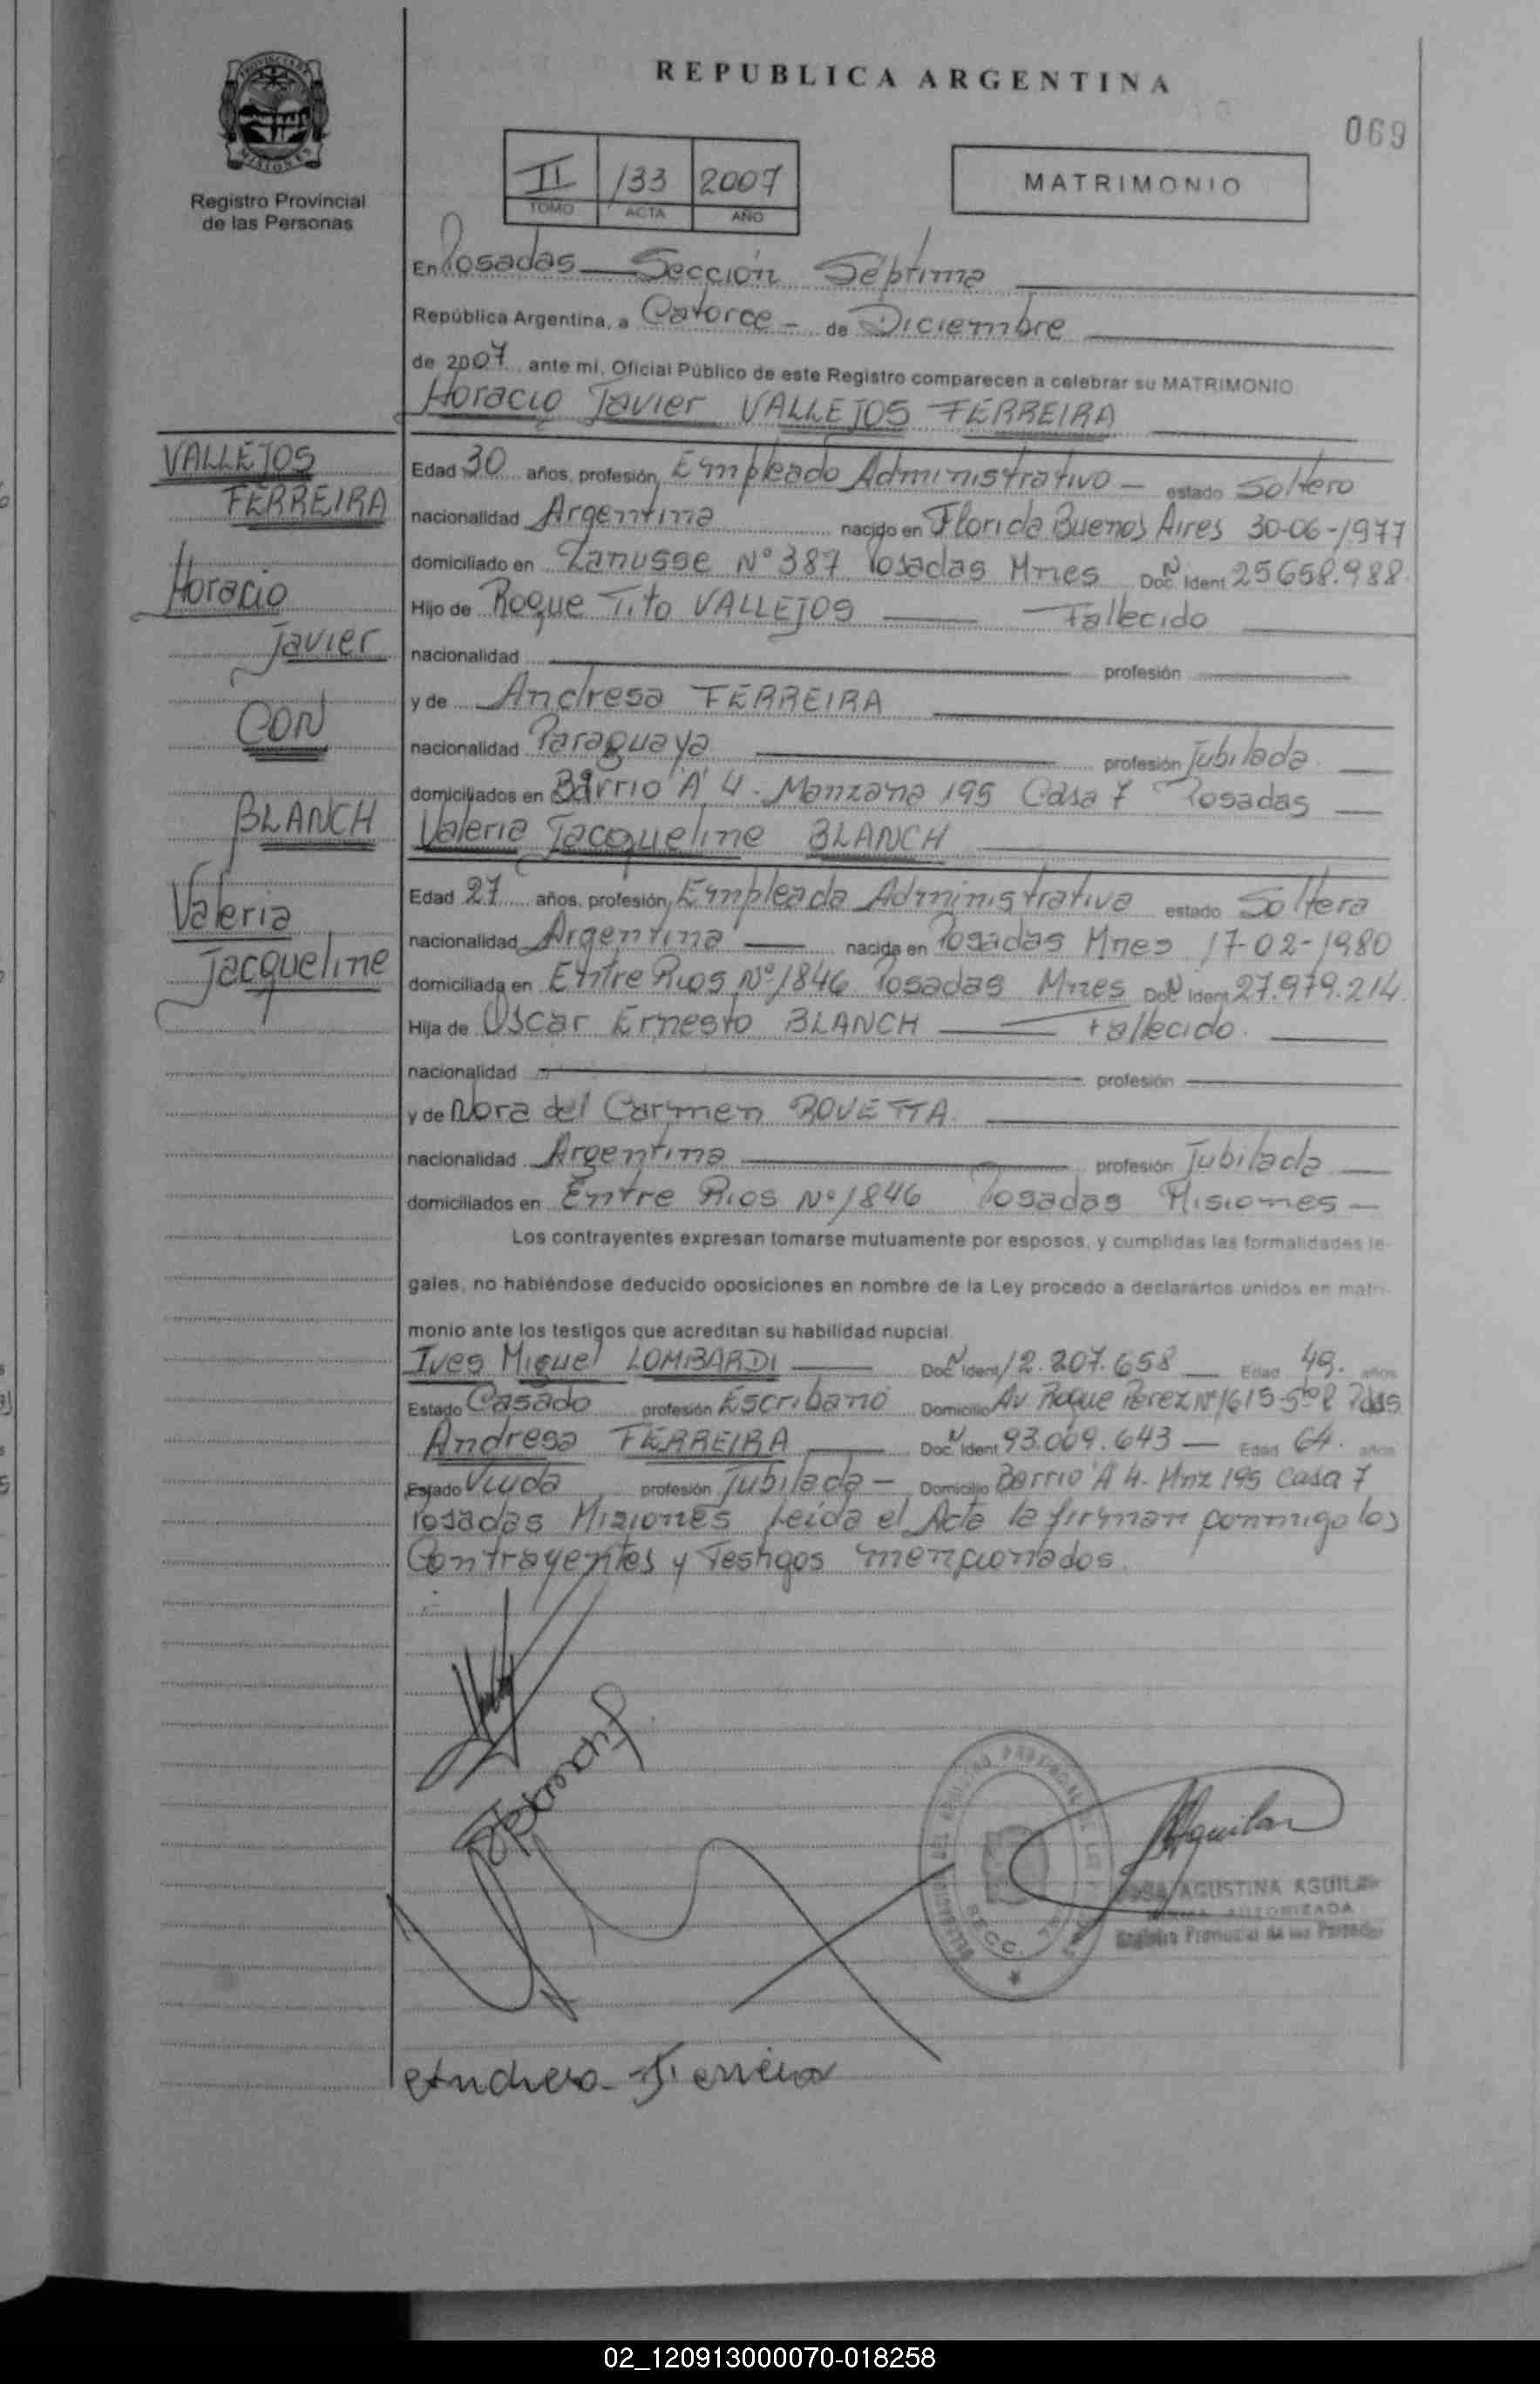 REPUBLICA ARGENTINA
069
PROVINCIA DE
MISIONES
Registro Provincial
de las Personas
II 133 2007
TOMO ACTA AÑO
MATRIMONIO
En Posadas — Sección Séptima
República Argentina, a Catorce - de Diciembre
de 2007 ante mi, Oficial Público de este Registro comparecen a celebrar su MATRIMONIO
Horacio Javier VALLEJOS FERREIRA
VALLEJOS
FERREIRA
Horacio
Javier
CON
BLANCH
Valeria
Jacqueline
Edad 30 años, profesión, Empleado Administrativo — estado Soltero
nacionalidad Argentina nacido en Florida Buenos Aires 30-06-1977
domiciliado en Lanusse Nº 387 Posadas Mnes Doc. N Ident 25658.988
Hijo de Roque Tito VALLEJOS — Fallecido
nacionalidad profesión
y de Andresa FERREIRA
nacionalidad Paraguaya profesión Jubilada
domiciliados en Barrio A 4 - Manzana 195 Casa 7 Posadas
Valeria Jacqueline BLANCH
Edad 27 años, profesión, Empleada Administrativa estado Soltera
nacionalidad Argentina — nacida en Posadas Mnes 17-02-1980
domiciliada en Entre Rios Nº 1846 Posadas Mnes Doc N Ident 27.979.214
Hija de Oscar Ernesto BLANCH — Fallecido.
nacionalidad profesión
y de Nora del Carmen ROVETTA.
nacionalidad Argentina profesión Jubilada
domiciliados en Entre Rios Nº 1846 Posadas Misiones —
Los contrayentes expresan tomarse mutuamente por esposos, y cumplidas las formalidades le-
gales, no habiéndose deducido oposiciones en nombre de la Ley procedo a declararlos unidos en matri-
monio ante los testigos que acreditan su habilidad nupcial.
Ives Miguel LOMBARDI — Doc. N Ident 12.207.658 — Edad 49. años
Estado Casado profesión Escribano Domicilio Av Roque Perez Nº 1615 5to Pdas
Andresa FERREIRA — Doc. N Ident 93.009.643 — Edad 64. años
Estado Viuda profesión Jubilada — Domicilio Barrio A 4 - Mnz 195 Casa 7
Posadas Misiones Leida el Acta la firman conmigo los
Contrayentes y Testigos mencionados.
Blanch
Aguilar
SECC. 7ª
AGUSTINA AGUILAR
FIRMA AUTORIZADA
Registro Provincial de las Personas
Andresa Ferreira
02_120913000070-018258